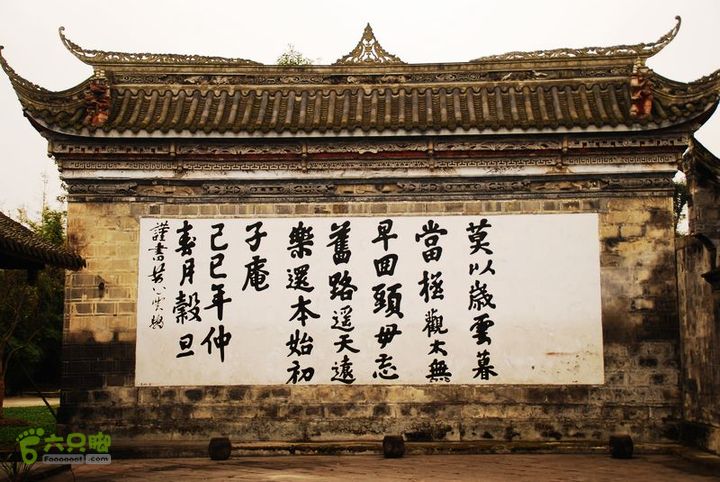 莫以歲雲暮
當極觀太無
早回頭毋忘
舊路遥天遠
樂還本始初
子庵
己巳年仲
春月穀旦
謹書
六只脚
Foooooot.com